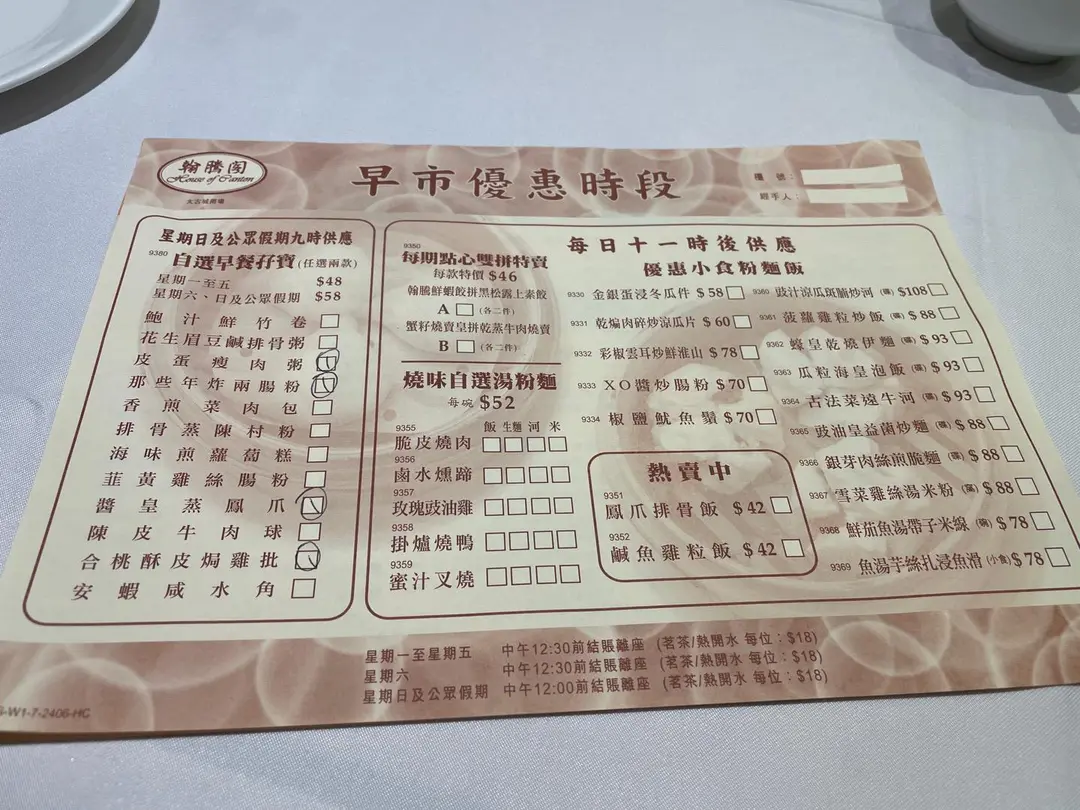 翰騰閣
House of Canton
太古城商場
早市優惠時段
檯號：
經手人：
星期日及公眾假期九時供應
9380 自選早餐孖寶(任選兩款)
星期一至五 $48
星期六、日及公眾假期 $58
鮑汁鮮竹卷
花生眉豆鹹排骨粥
皮蛋瘦肉粥
那些年炸兩腸粉
香煎菜肉包
排骨蒸陳村粉
海味煎蘿蔔糕
韮黃雞絲腸粉
醬皇蒸鳳爪
陳皮牛肉球
合桃酥皮焗雞批
安蝦咸水角
9350
每期點心雙拼特賣
每款特價 $46
翰騰鮮蝦餃拼黑松露上素餃
A (各二件)
蟹籽燒賣皇拼乾蒸牛肉燒賣
B (各二件)
燒味自選湯粉麵
每碗 $52
飯 生麵 河 米
9355
脆皮燒肉
9356
鹵水燻蹄
9357
玫瑰豉油雞
9358
掛爐燒鴨
9359
蜜汁叉燒
每日十一時後供應
優惠小食粉麵飯
9330 金銀蛋浸冬瓜件 $58
9331 乾煸肉碎炒涼瓜片 $60
9332 彩椒雲耳炒鮮淮山 $78
9333 XO醬炒腸粉 $70
9334 椒鹽魷魚鬚 $70
熱賣中
9351
鳳爪排骨飯 $42
9352
鹹魚雞粒飯 $42
9360 豉汁涼瓜斑腩炒河 (碟) $108
9361 菠蘿雞粒炒飯 (碟) $88
9362 蠔皇乾燒伊麵 (碟) $93
9363 瓜粒海皇泡飯 (碟) $93
9364 古法菜遠牛河 (碟) $93
9365 豉油皇益菌炒麵 (碟) $88
9366 銀芽肉絲煎脆麵 (碟) $88
9367 雪菜雞絲湯米粉 (碗) $88
9368 鮮茄魚湯帶子米線 (碗) $78
9369 魚湯芋絲扎浸魚滑 (小食) $78
星期一至星期五 中午12:30前結賬離座 (茗茶/熱開水 每位：$18)
星期六 中午12:30前結賬離座 (茗茶/熱開水 每位：$18)
星期日及公眾假期 中午12:00前結賬離座 (茗茶/熱開水 每位：$18)
-W1-7-2406-HC